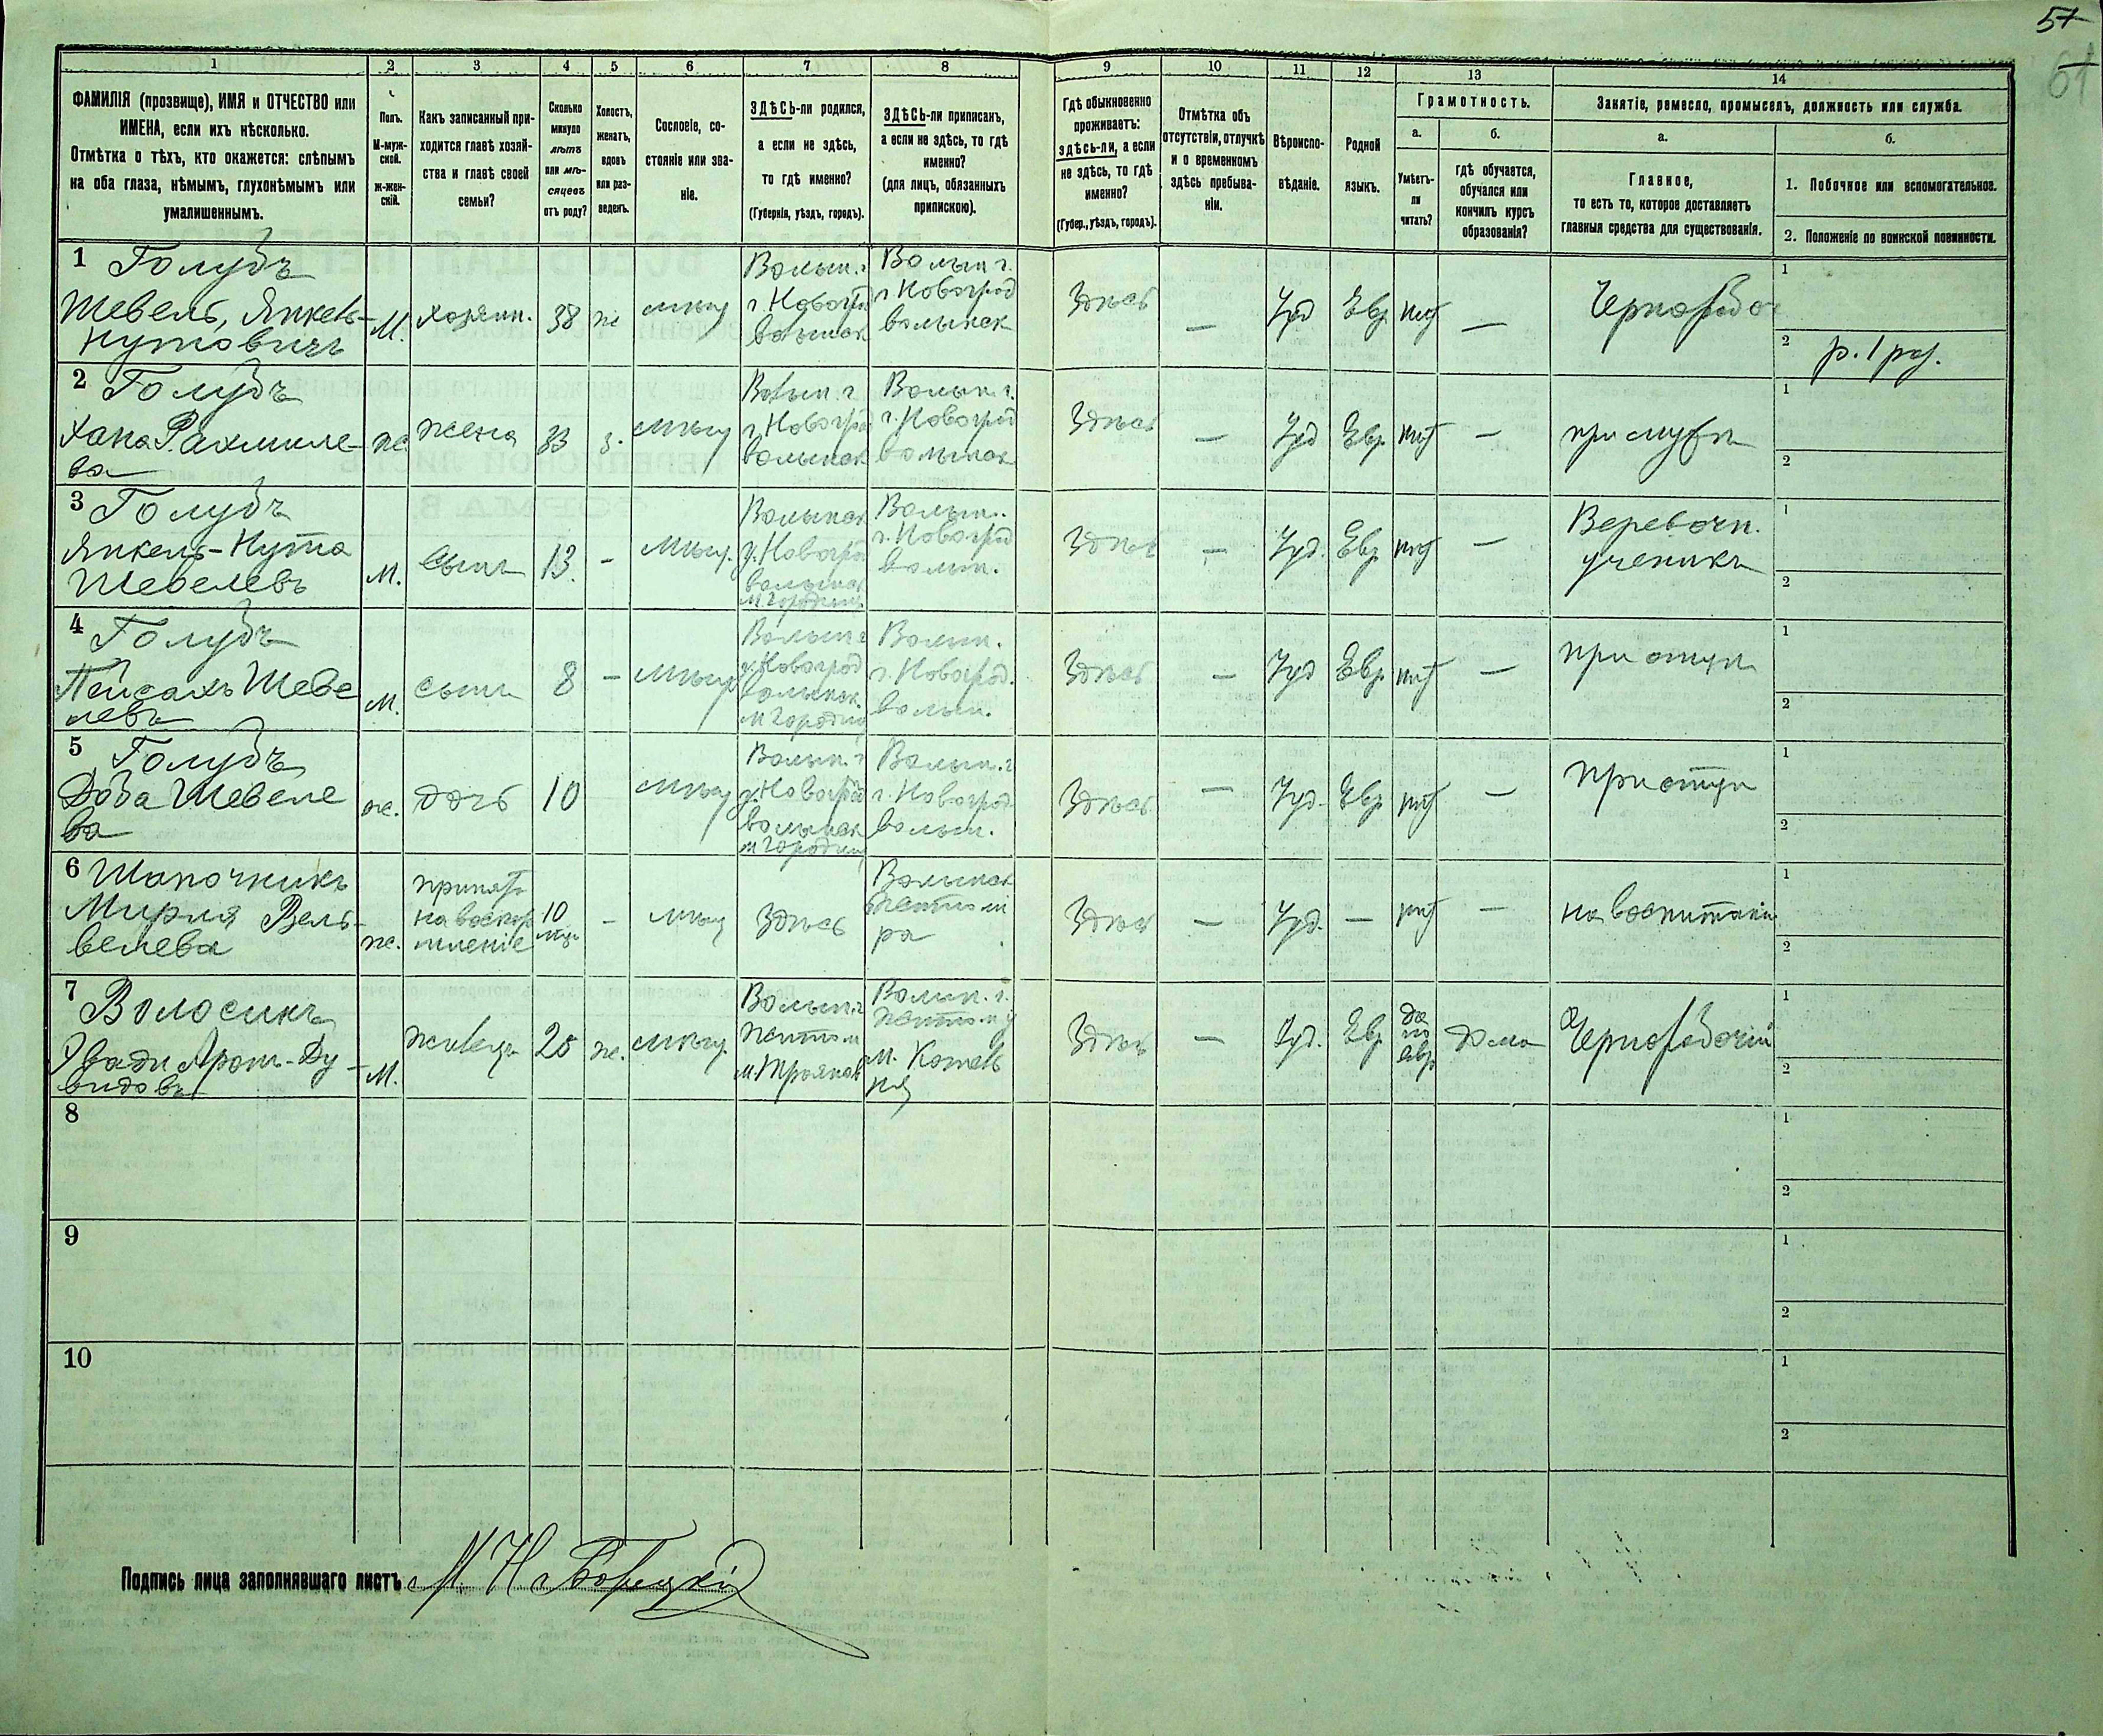 57
61
1
2
3
4
5
6
7
8
9
10
11
12
13
14
ФАМИЛІЯ (прозвище), ИМЯ и ОТЧЕСТВО или
ИМЕНА, если ихъ нѣсколько.
Отмѣтка о тѣхъ, кто окажется: слѣпымъ
на оба глаза, нѣмымъ, глухонѣмымъ или
умалишеннымъ.
Полъ.
М-муж-
ской.
ж-жен-
скій.
Какъ записанный при-
ходится главѣ хозяй-
ства и главѣ своей
семьи?
Сколько
минуло
лѣтъ
или мѣ-
сяцевъ
отъ роду?
Холостъ,
женатъ,
вдовъ
или раз-
веденъ.
Сословіе, со-
стояніе или зва-
ніе.
ЗДѢСЬ-ли родился,
а если не здѣсь,
то гдѣ именно?
(Губернія, уѣздъ, городъ).
ЗДѢСЬ-ли приписанъ,
а если не здѣсь, то гдѣ
именно?
(для лицъ, обязанныхъ
припискою).
Гдѣ обыкновенно
проживаетъ:
здѣсь-ли, а если
не здѣсь, то гдѣ
именно?
(Губер., уѣздъ, городъ).
Отмѣтка объ
отсутствіи, отлучкѣ
и о временномъ
здѣсь пребыва-
ніи.
Вѣроиспо-
вѣданіе.
Родной
языкъ.
Грамотность.
а.
б.
Умѣетъ-
ли
читать?
гдѣ обучается,
обучался или
кончилъ курсъ
образованія?
Занятіе, ремесло, промыселъ, должность или служба.
а.
б.
Главное,
то есть то, которое доставляетъ
главныя средства для существованія.
1. Побочное или вспомогательное.
2. Положеніе по воинской повинности.
1 Голубъ
Шевель, Янкель-
Нутовичъ
М.
хозяин.
38
ж
мѣщ
Волын. г
г. Новогр
волынск
Волын г.
г Новоград
волынск
Здѣсь
—
Іуд
Евр
нѣт
—
Чернорабоч
1
2 р. 1 раз.
2 Голубъ
Хана Рахмиле-
ва
ж.
жена
33
з.
мѣщ
Волын г
г. Новогр
волынск
Волын г.
г. Новоград
волынск
Здѣсь
—
Іуд
Евр
нѣт
—
при мужѣ
1
2
3 Голубъ
Янкель-Нута
Шевелевъ
м.
сынъ
13.
-
Мѣщ.
Волынск
у. Новогр
волынск
м Городниц
Волын.
г. Новоград
волын.
Здѣсь
—
Іуд.
Евр
нѣт
—
Веревочн.
ученикъ
1
2
4 Голубъ
Пейсахъ Шеве
левъ
м.
сынъ
8
-
Мѣщ
Волын г
у. Новоград
волынск.
м Городниц
Волын.
г. Новоград.
волын.
Здѣсь
—
Іуд
Евр
нѣт
—
при отцѣ
1
2
5 Голубъ
Доба Шевеле
ва
ж.
дочь
10
мѣщ
Волын. г
у. Новоград
волынск
м Городниц
Волын. г
г. Новоград.
волын.
Здѣсь
—
Іуд.
Евр
нѣт
—
при отцѣ
1
2
6 Шапочникъ
Мирля Вель-
велева
ж.
принята
на воскор
мленіе
10
мѣс
-
мѣщ
Здѣсь
Волынск
Житоми
ра
Здѣсь
—
Іуд.
—
нѣт
—
на воспитаніи
1
2
7 Волосикъ
Аронъ-Ду-
видовъ
М.
жилецъ
ж.
мѣщ.
Волын. г
Житом
м. Троянов
Волын. г.
Житом у
м. Котель
ня
Здѣсь
—
Іуд.
Евр
да
по
евр
дома
Чернорабочій
1
2
8
1
2
9
1
2
10
1
2
Подпись лица заполнявшаго листъ